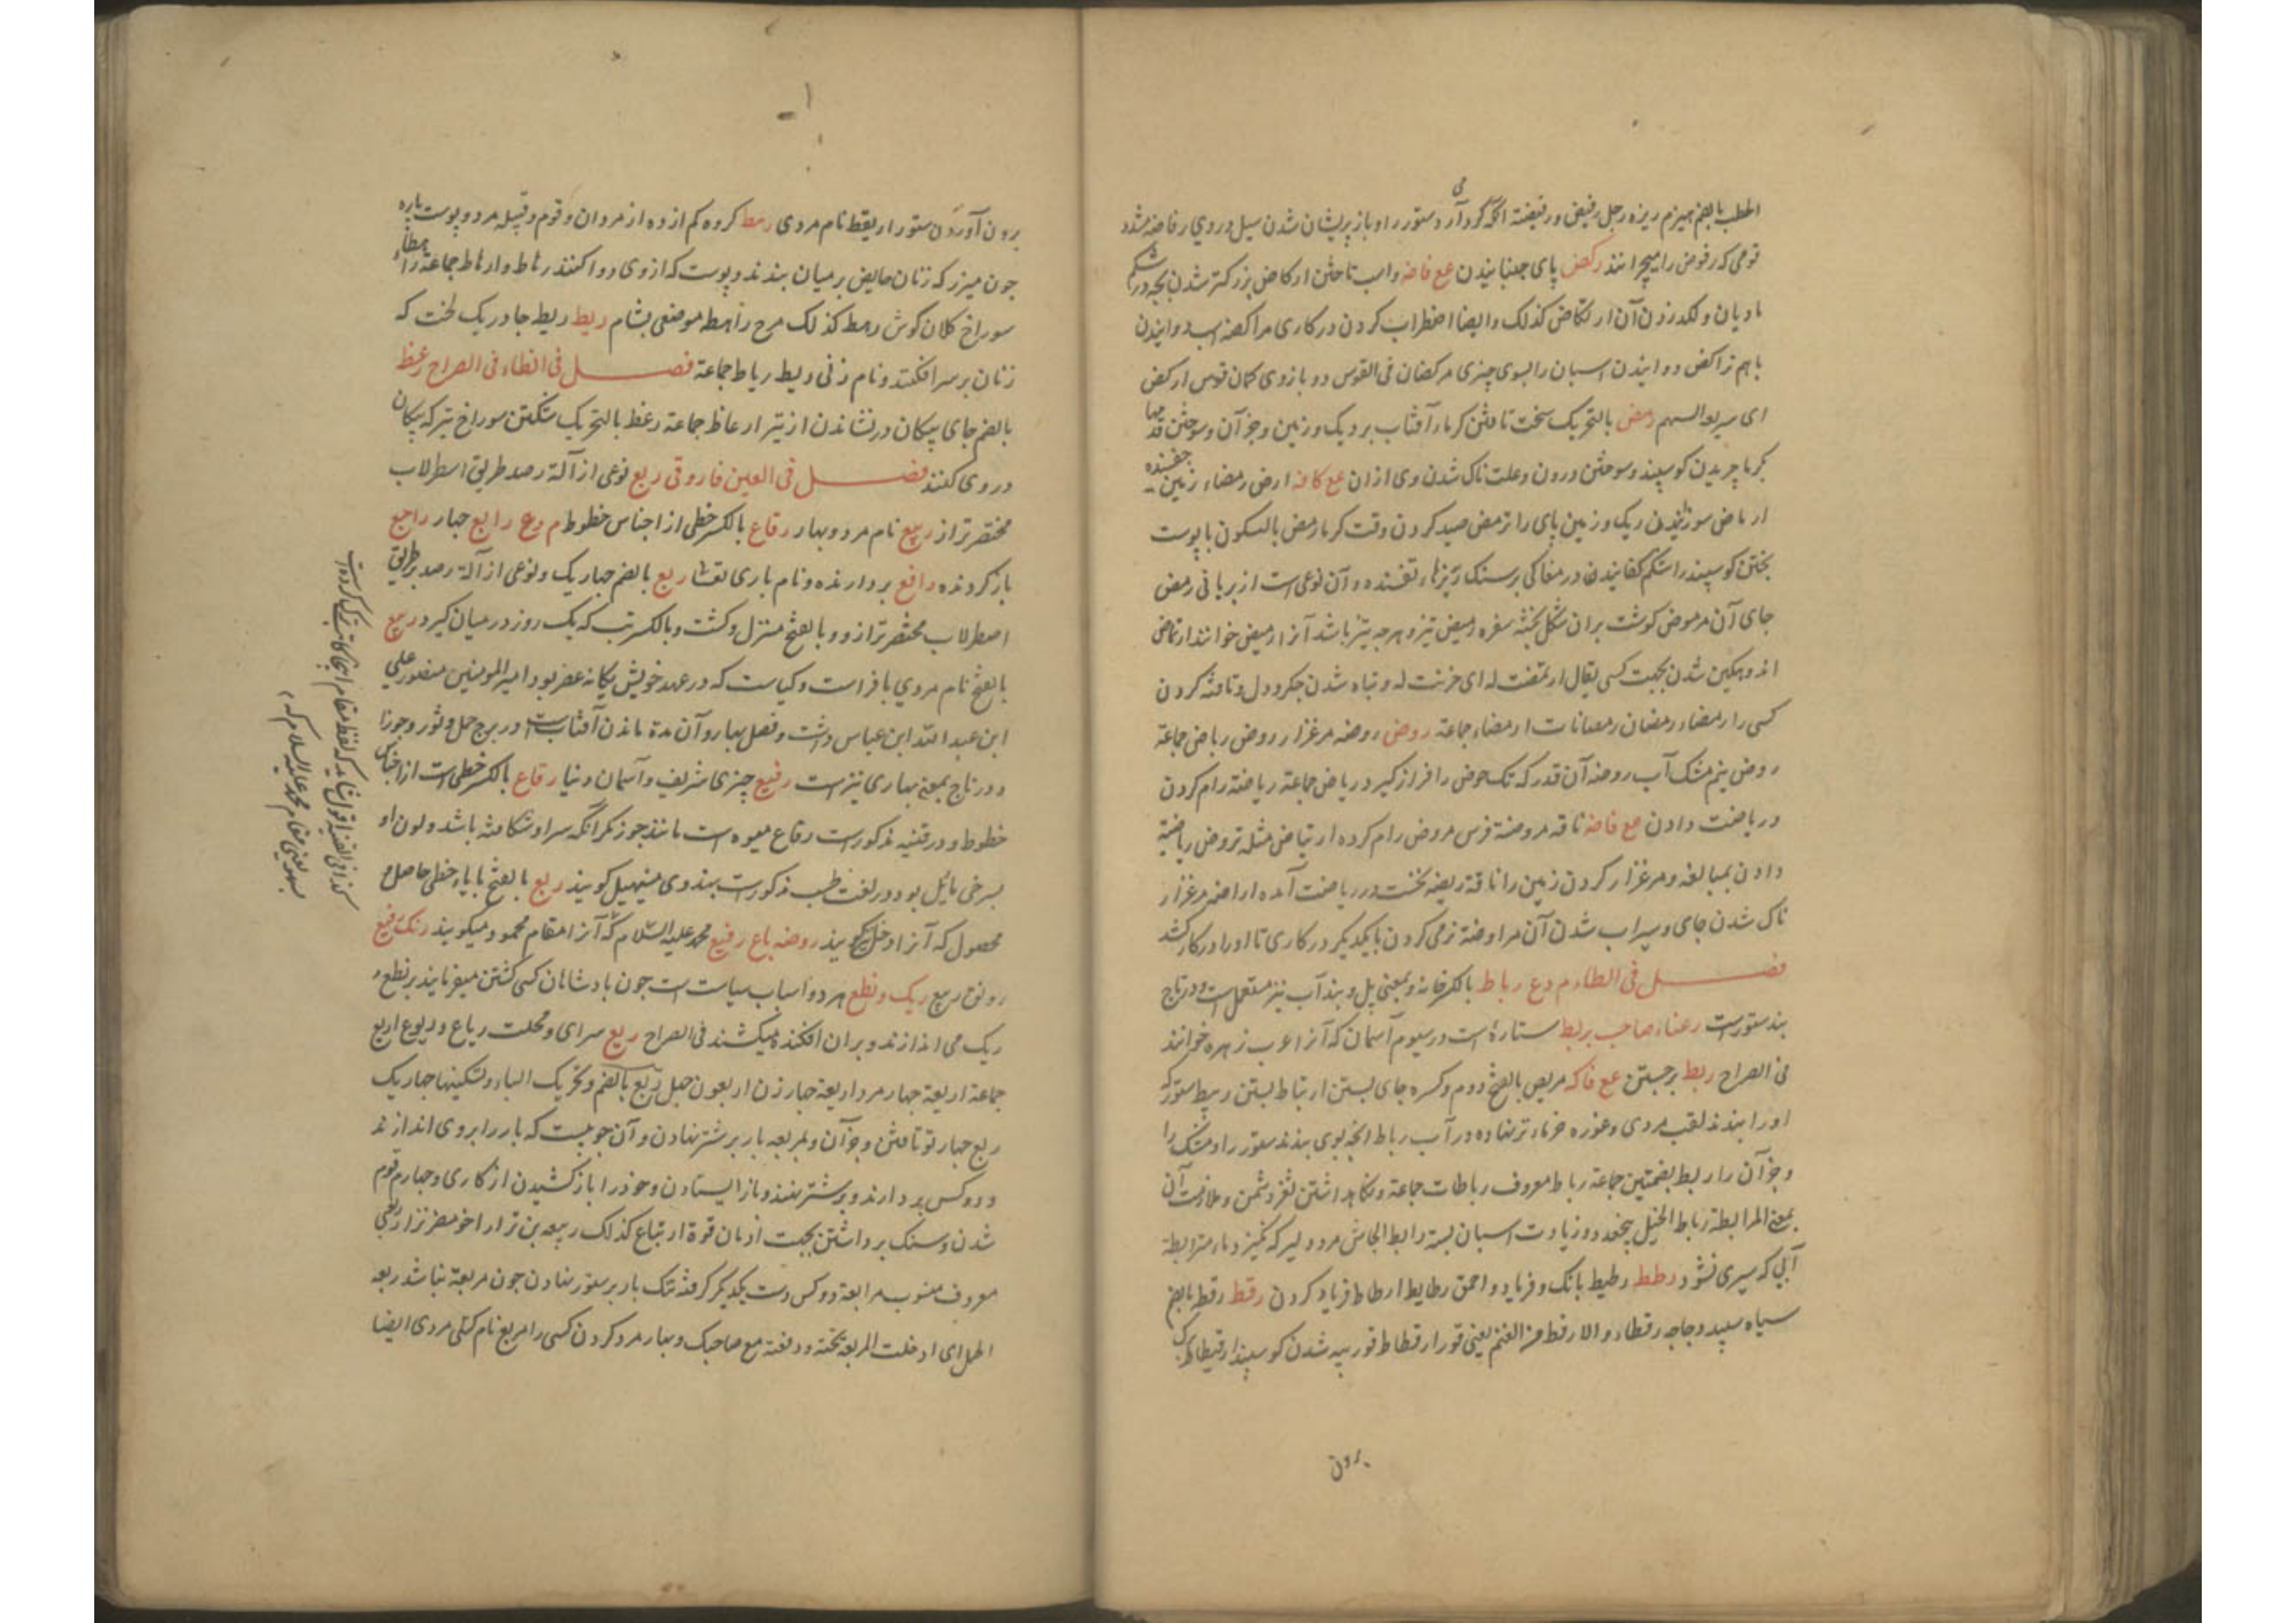 الحطب بالضم هیزم ریزه رجل رفیض ورفیضة انکه کرد می آرد ستور را و باز پریشان شدن سیل در روی رفاضه مشدد
قومی که رفوض را میچرانند رکض پای جنبانیدن مع فاضه واسب تاختن ارکاض بزرکتر شدن بچه در شکم
مادیان ولکد زدن آن ارتکاض کذلک وایضا اضطراب کردن در کاری مراکضه اسب دوانیدن
باهم تراکض دوانیدن اسبان را بسوی چیزی مرکضان فی القوس دو بازوی کمان قوس ارکض
ای سریع السهم رمض بالتحریک سخت تافتن کرما و آفتاب بر ریک و زمین وجز آن وسوختن قدمها
بکرما چریدن کوسپند وسوختن درون وعلت ناک شدن وی ازان مع کافه ارض رمضاء زمین تفسنده
ارماض سوزانیدن ریک و زمین پای را ترمض صید کردن وقت کرما رمض بالسکون باپوست
پختن کوسپند را شکم کفانیدن در مغاکی بر سنک ریزهاء تفسنده و آن نوعی است از بریانی رمض
جای آن مرموض کوشت بران شکل پخته سفره رمیض تیز وهرچه تیز باشد آنرا رمیض خوانند ارتماض
اندوهکین شدن بجهت کسی یقال ارتمضت له ای حزنت له و تباه شدن جکر و دل و تافته کردن
کسی را رمضاء رمضان رمضانات ارمضاء جماعة روض روضه مرغزار روض ریاض جماعة
روض نیم مشک آب روضه آن قدر که تک حوض را فراز کیرد ریاض جماعة ریاضة رام کردن
و ریاضت دادن مع فاضه ناقه مروضة فرس مروض رام کرده ارتیاض مثله ترویض ریاضت
دادن بمبالغه و مرغزار کردن زمین را ناقة ریضه نخست در ریاضت آمده اراضه مرغزار
ناک شدن جای و سیراب شدن آن مراوضة نرمی کردن بایکدیکر در کاری تا او را در کار کشد
فصل فی الطاء م وع رباط بالکسر خانه و بمعنی پل و بند آب نیز مستعمل است و در تاج
بند ستورست رعناء صاحب بربط ستارۀ است در سیوم آسمان که آنرا عرب زهره خوانند
فی الصراح ربط بر جستن مع فاکه مربض بالفتح دوم وکسره جای بستن ارتباط بستن ربیط ستور که
او را بندند لقب مردی وغوره خرماء تر نهاده در آب رباط انچه بوی بندند ستور را و مشک را
وجز آن را ربط بضمتین جماعة رباط معروف رباطات جماعة و نکاهداشتن ثغر دشمن و ملازمت آن
بمعنی المرابطة رباط الخیل پنجعدد و زیادت اسبان بسته رابط الجاش مرد دلیر که نکریزد ماء مترابط
آبی که سپری نشود رطط رطیط بانک و فریاد و احمق رطایط ارطاط فریاد کردن رقط رقط بالضم
سیاه سپید دجاجه رقطاء والارقط من الغنم یعنی قور ارقطاط قور پیسه شدن کوسپند ارقیطاط برک
برون
برون آوردن ستور اریقط نام مردی رهط کروه کم از ده از مردان وقوم و قبیله مرد و پوست پاره
چون میزر که زنان حایض بر میان بندند و پوست که ازوی دوا کنند رهاط وارهاط جماعة راهطاء
سوراخ کلان کوش رهط کذلک مرج راهط موضعی بشام ریط ریط چادر یک لخت که
زنان بر سر افکنند و نام زنی ریط ریاط جماعة فصل فی الظاء فی الصراح رعظ
بالضم جای پیکان در نشاندن از تیر ارعاظ جماعة رعظ بالتحریک شکستن سوراخ تیر که پیکان
در وی کنند فصل فی العین فاروقی ربع نوعی از آلة رصد طریق اسطرلاب
مختصرتر از ربیع نام مرد و بهار رقاع بالکسر خطی از اجناس خطوط م وع رابع چهار راجع
باز کردنده رافع بردارنده و نام باری تعالی ربع بالضم چهاریک و نوعی از آلة رصد بر طریق
اصطرلاب مختصرتر ازو و بالفتح منزل و کشت و بالکسر تب که یک روز در میان کیرد ربیع
بالفتح نام مردی با فراست و کیاست که در عهد خویش یکانه عصر بود امیر المومنین منصور علی
ابن عبد الله ابن عباس داشت و فصل بهار و آن مدة ماندن آفتابست در برج حمل و ثور و جوزا
و در تاج بمعنی بهاری نیز است رفیع چیزی شریف و آسمان دنیا رقاع بالکسر خطی است از اجناس
خطوط و در قنیه مذکورست رقاع میوه است مانند جوز مکر آنکه سر او شکافته باشد و لون او
بسرخی مایل بود و در لغت طب مذکورست بهندوی مینپهل کویند ریع بالفتح با یاء خطی حاصل و
محصول که آنرا دخل کویند روضه باغ رفیع محمد علیه السلام که آنرا مقام محمود میکویند رنک تیغ
رونق سریع ریک و نطع هر دو اسباب سیاست است چون بادشاهان کسی کشتن میفرمایند بر نطع و
ریک می اندازند و بران افکنده میکشند فی الصراح ربع سرای و محلت رباع و ربوع اربع
جماعة اربعة چهار مرد اربعة چهار زن اربعون چهل ربع بالضم و تحریک الباء و تسکینها چهاریک
ربع چهار تو تافتن وجز آن و بمربعه بار بر شتر نهادن و آن چوبیست که بار را بروی اندازند
و دو کس بردارند و بر شتر نهند و باز ایستادن و خود را باز کشیدن از کاری و چهارم قوم
شدن و سنک برداشتن بجهت ازمان قوة ارتباع کذلک ربیعه بن نزار اخو مضر نزار ربعی
معروف منسوب مرابعة دو کس دست یکدیکر کرفته تنک بار بر ستور نهادن چون مربعة نباشد ربعه
الحمل ای ادخلت المربعة تحته و رفعته مع صاحبک و چهار مرد کردن کسی را مربع نام کتلی مردی ایضا
کذا فی القنیة اقول شاید که لفظ مقام اینجا کاتب ترک کرده است
سهو یعنی مقام محمد علیه السلام که